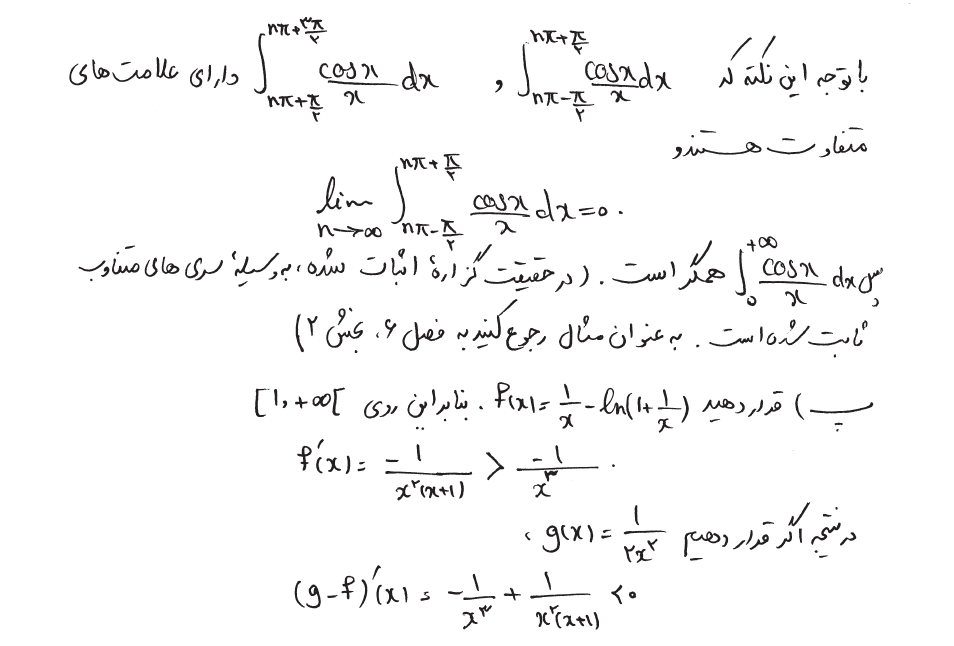 با توجه این نکته که ∫_{nπ-π/۲}^{nπ+π/۲} cosx/x dx و ∫_{nπ+π/۲}^{nπ+۳π/۲} cosx/x dx دارای علامت های
متفاوت هستند و
lim_{n→∞} ∫_{nπ-π/۲}^{nπ+π/۲} cosx/x dx = ۰.
پس ∫_۰^{+∞} cosx/x dx همگر است. (در حقیقت گزارهٔ اثبات شده، به وسیلهٔ سری های متناوب
ثابت شده است. به عنوان مثال رجوع کنید به فصل ۶، بخش ۲)
پ) قرار دهید f(x) = 1/x - ln(1+1/x). بنابراین روی [1,+∞[
f′(x) = -1/(x^۲(x+1)) > -1/x^۳.
در نتیجه اگر قرار دهیم g(x) = 1/(۲x^۲)،
(g-f)′(x) = -1/x^۳ + 1/(x^۲(x+1)) < ۰